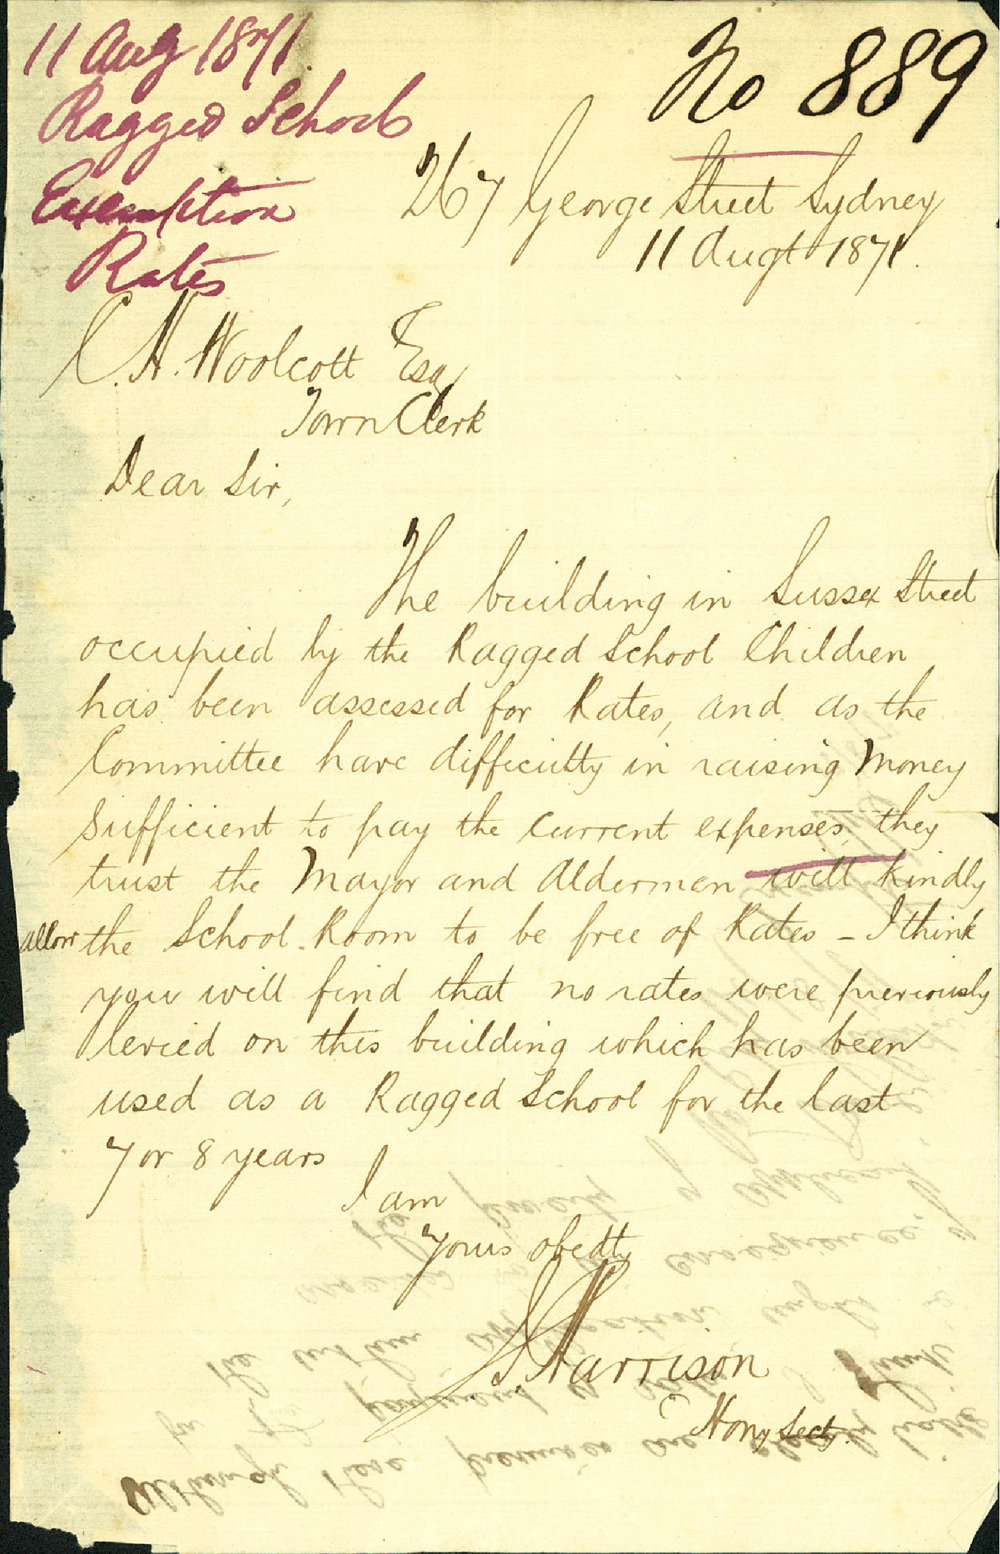 11 Aug 1871.
Ragged Schools
Exemption
Rates
No 889
267 George Street Sydney
11 Augt 1871.
C. H. Woolcott Esq
Town Clerk
Dear Sir,
The building in Sussex Street
occupied by the Ragged School Children
has been assessed for Rates, and as the
Committee have difficulty in raising Money
sufficient to pay the current expenses, they
trust the Mayor and Aldermen will kindly
allow the School-Room to be free of Rates – I think
you will find that no rates were previously
levied on this building which has been
used as a Ragged School for the last
7 or 8 years
I am
Yours obedtly
Harrison
Hony Secty.